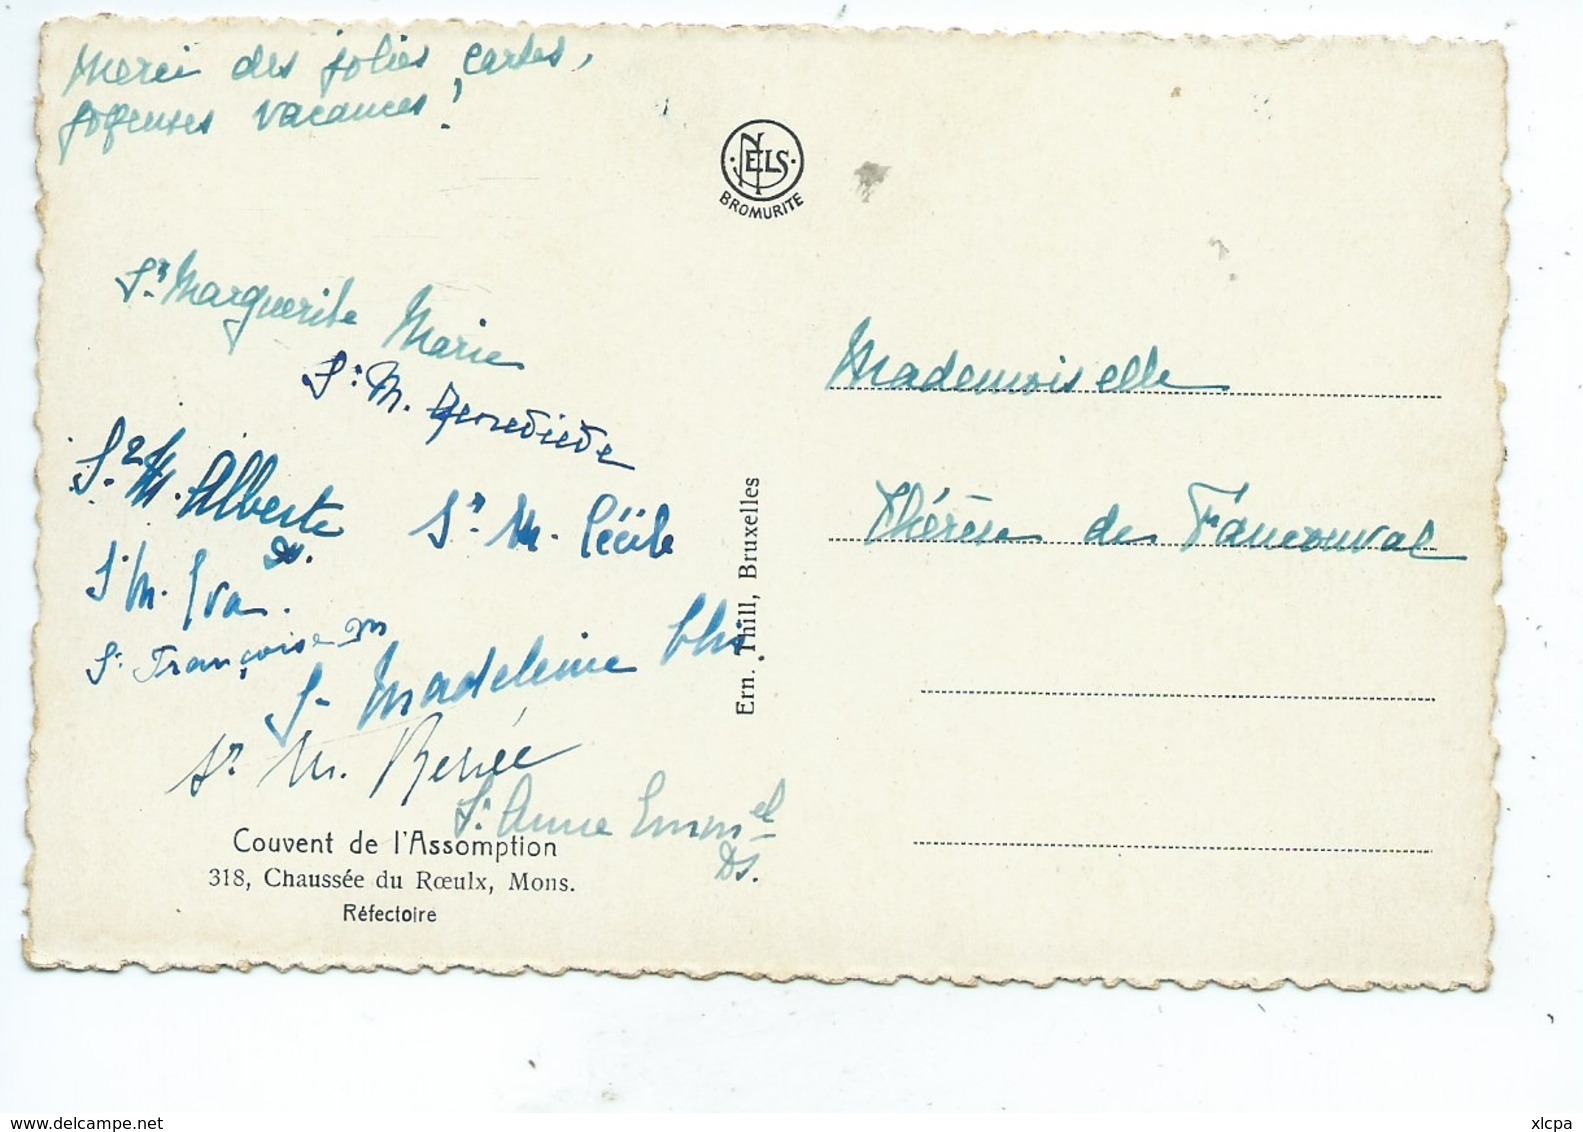 Merci des jolies cartes,
Joyeuses vacances!
NELS
BROMURITE
Sr Marguerite Marie
Sr M. Benedicte
Sr M. Alberte
Ds.
Sr M. Cécile
Sr M. Iva.
Sr Françoise M
Sr Madeleine
Sr M. Renée
Sr Anne Emmel
Ds.
Couvent de l'Assomption
318, Chaussée du Rœulx, Mons.
Réfectoire
Ern. Thill, Bruxelles
Mademoiselle
Thérèse de Fanconval
www.delcampe.net
xlcpa